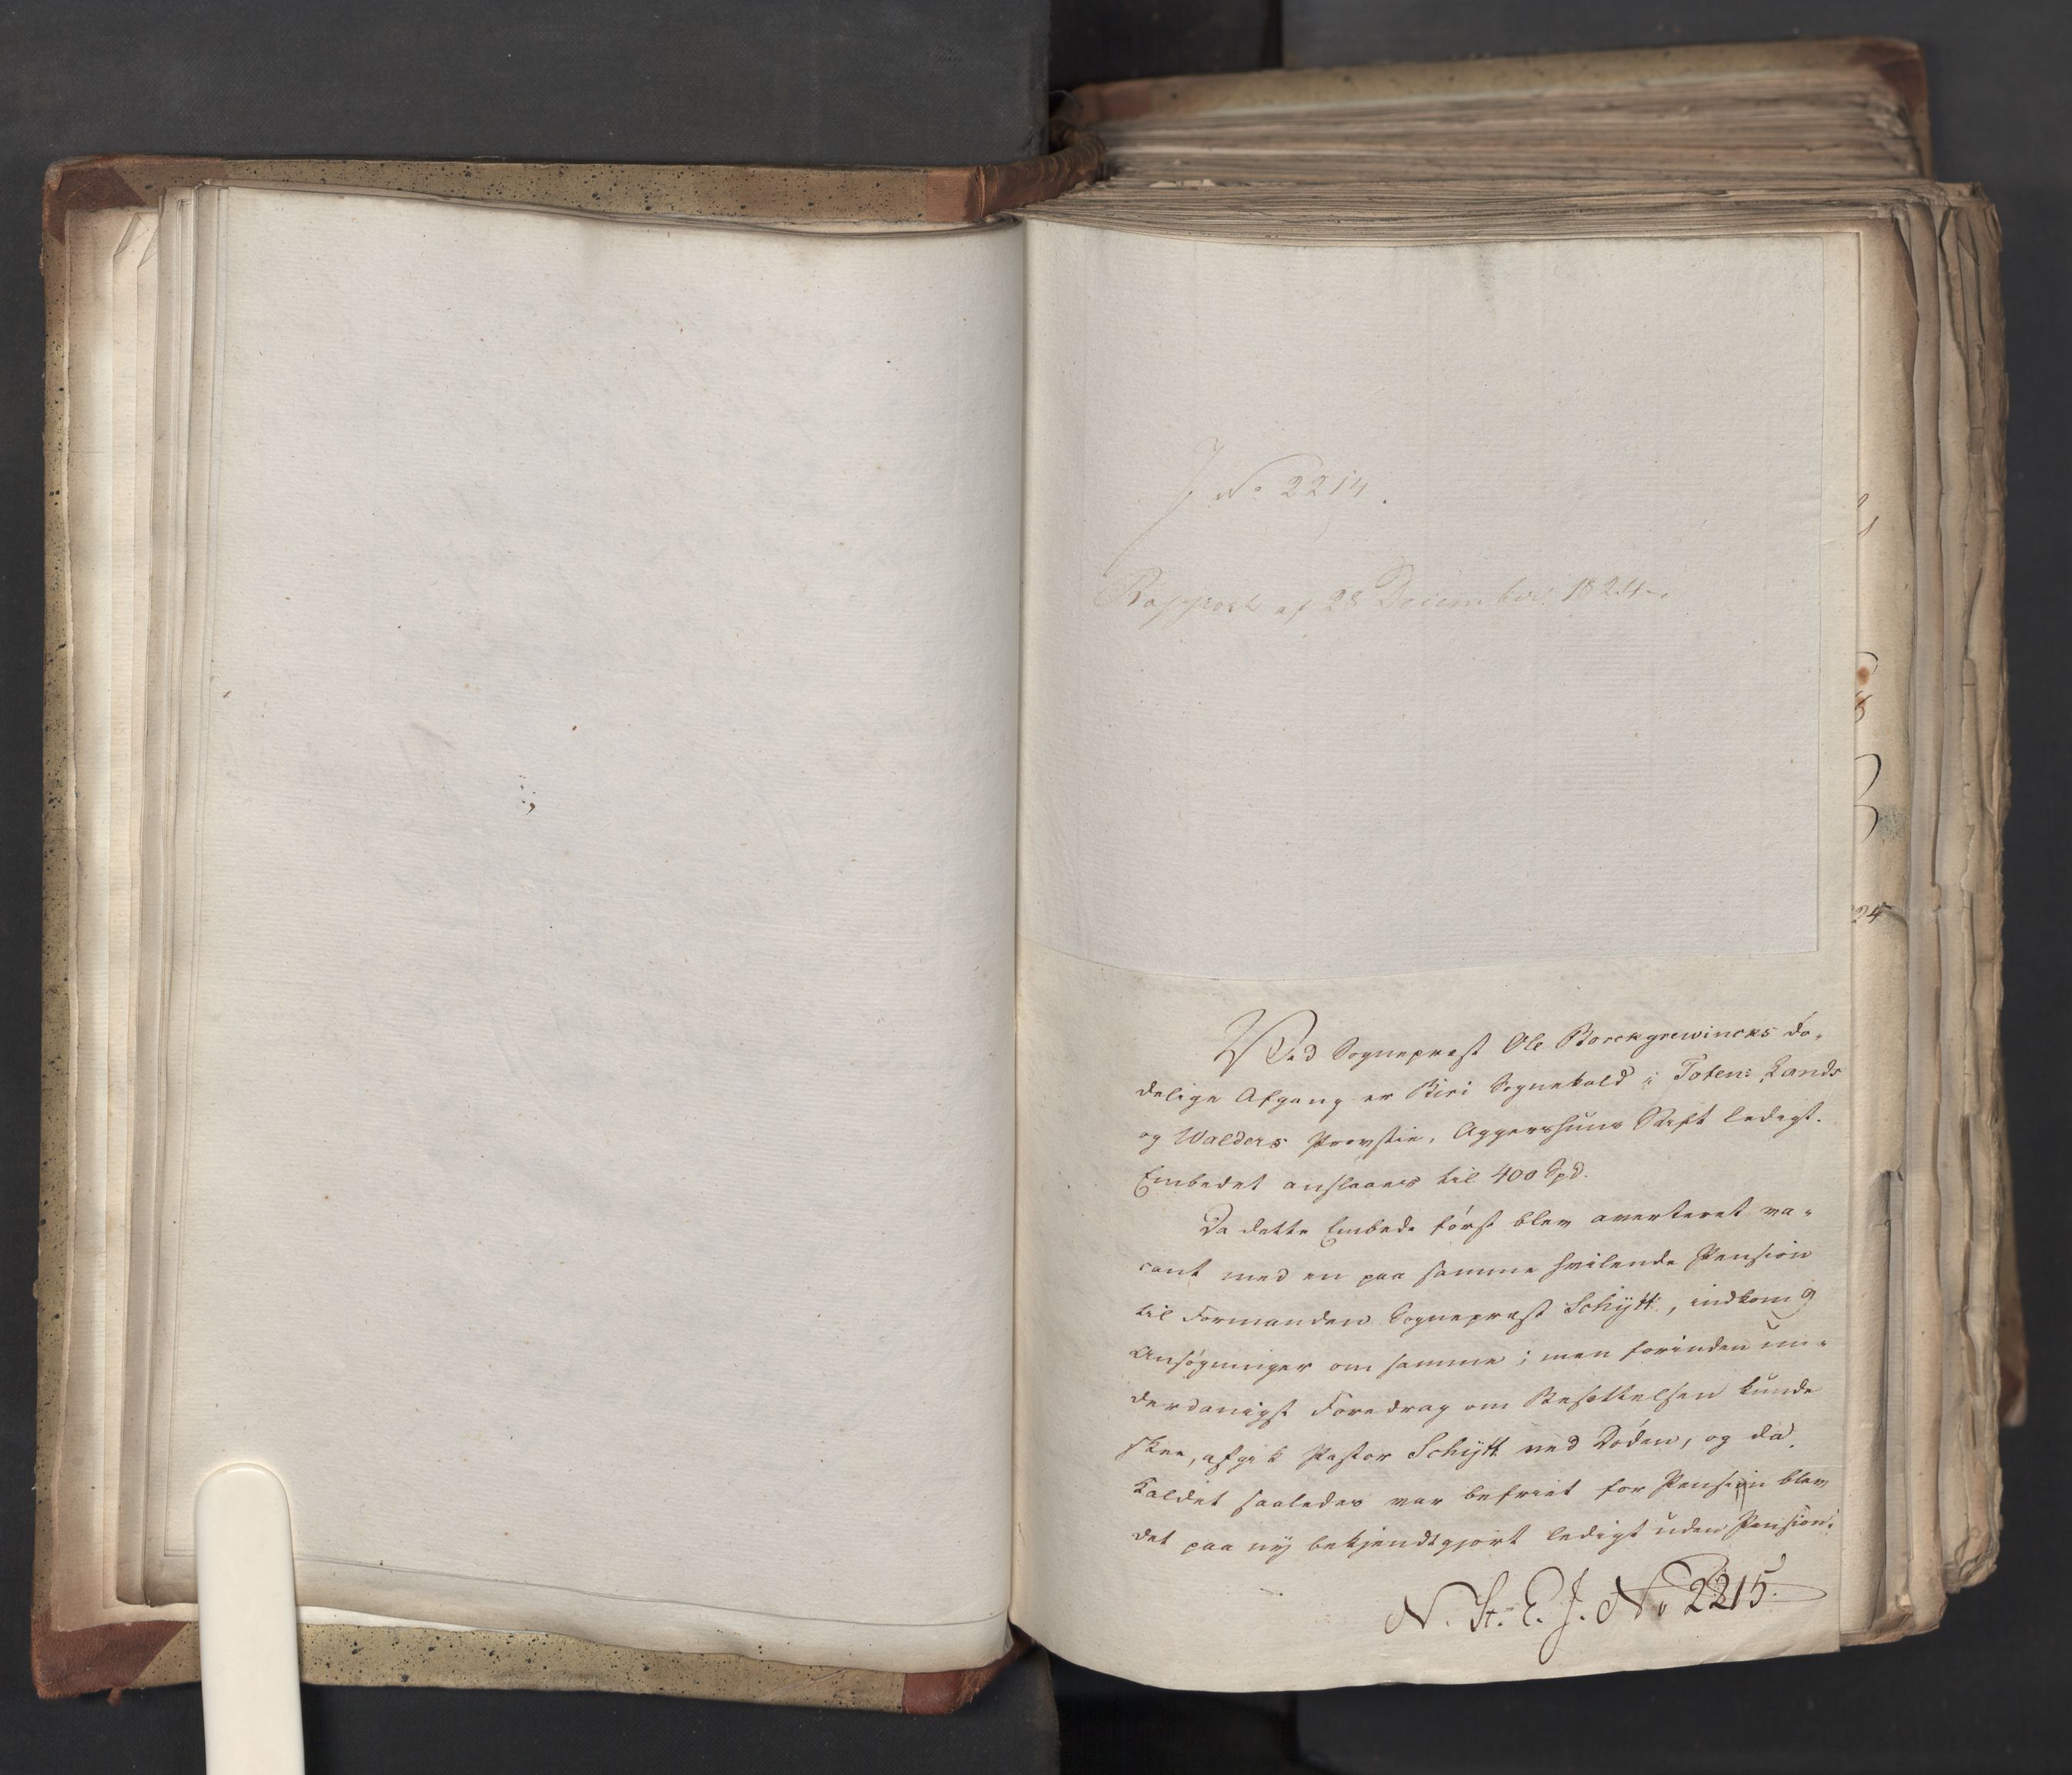 J No 2214.
Rapport af 28 December 1824.
Ved Sognepræst Ole Borckgrewincks dø-
delige Afgang er Biri Sognekald i Toten: Lands
og Walders Provstie, Aggershuus Stift ledigt.
Embedet anslaaes til 400 Spd.
Da dette Embede først blev averteret va-
cant med en paa samme hvilende Pension
til Formanden Sognepræst Schÿtt, indkom 9
Ansøgninger om samme; men forinden un-
derdanigst Foredrag om Besættelsen kunde
skee, afgik Pastor Schÿtt ved Døden, og da
Kaldet saaledes var befriet for Pension blev
det paa nÿ bekjendtgjort ledigt uden Pension.
N. St. E. J. No 2215.
24